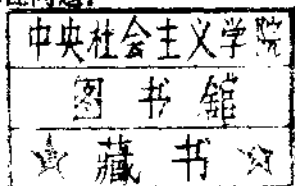 中央社会主义学院
图书馆
☆藏书☆